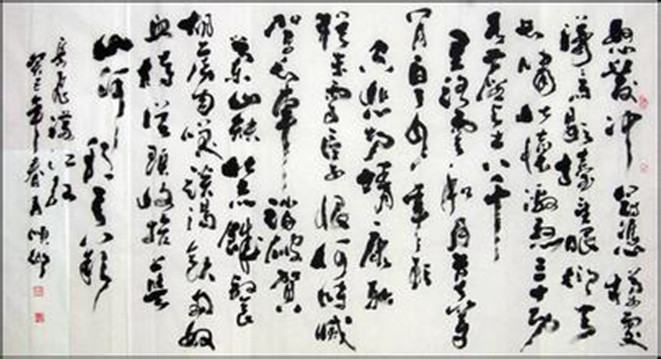 怒髮冲冠憑欄處
瀟瀟雨歇抬望眼仰天
長嘯壯懷激烈三十功
名塵與土八千
里路雲和月莫等
閒白了少年頭
空悲切靖康恥
猶未雪臣子恨何時滅
駕長車踏破賀
蘭山缺壯志飢餐
胡虜肉笑談渴飲匈奴
血待從頭收拾舊
山河朝天闕
岳飛滿江紅
癸巳年春月